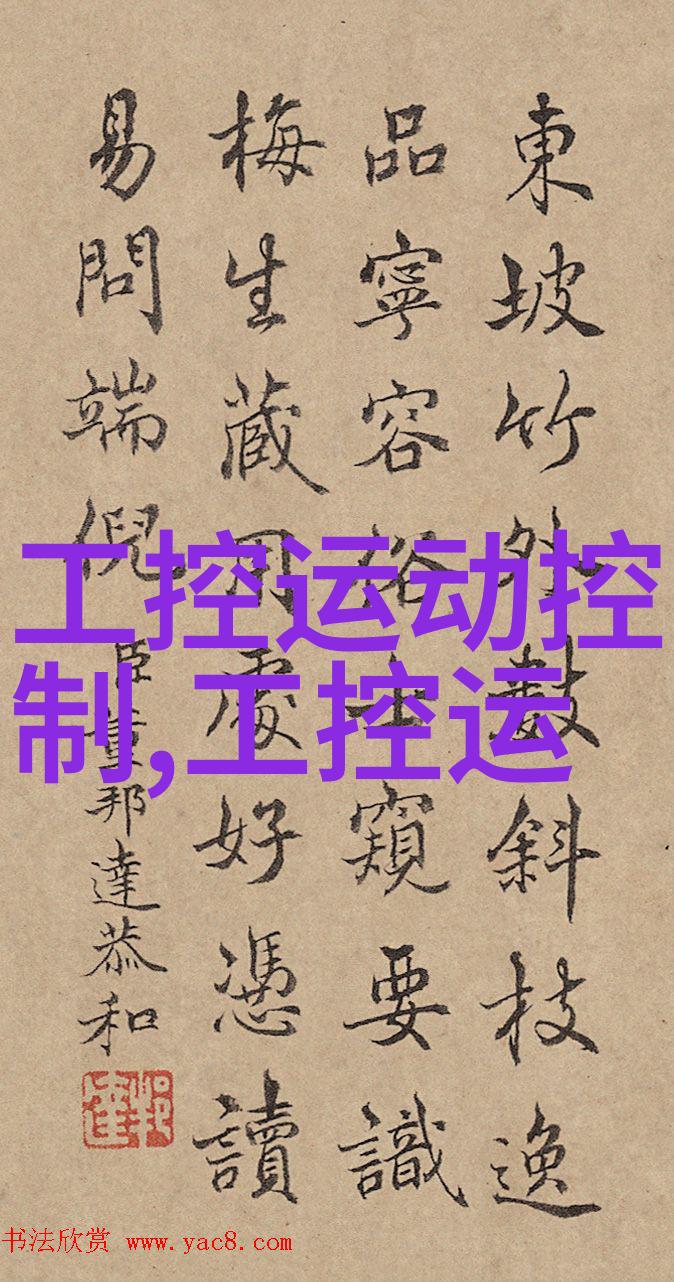 東坡竹外斜枝逸
品寧容俗士窺要識
梅生蔵用處好憑讀
易問端倪
臣董邦達恭和
工控运动控
制,工控运
书法欣赏 www.yac8.com